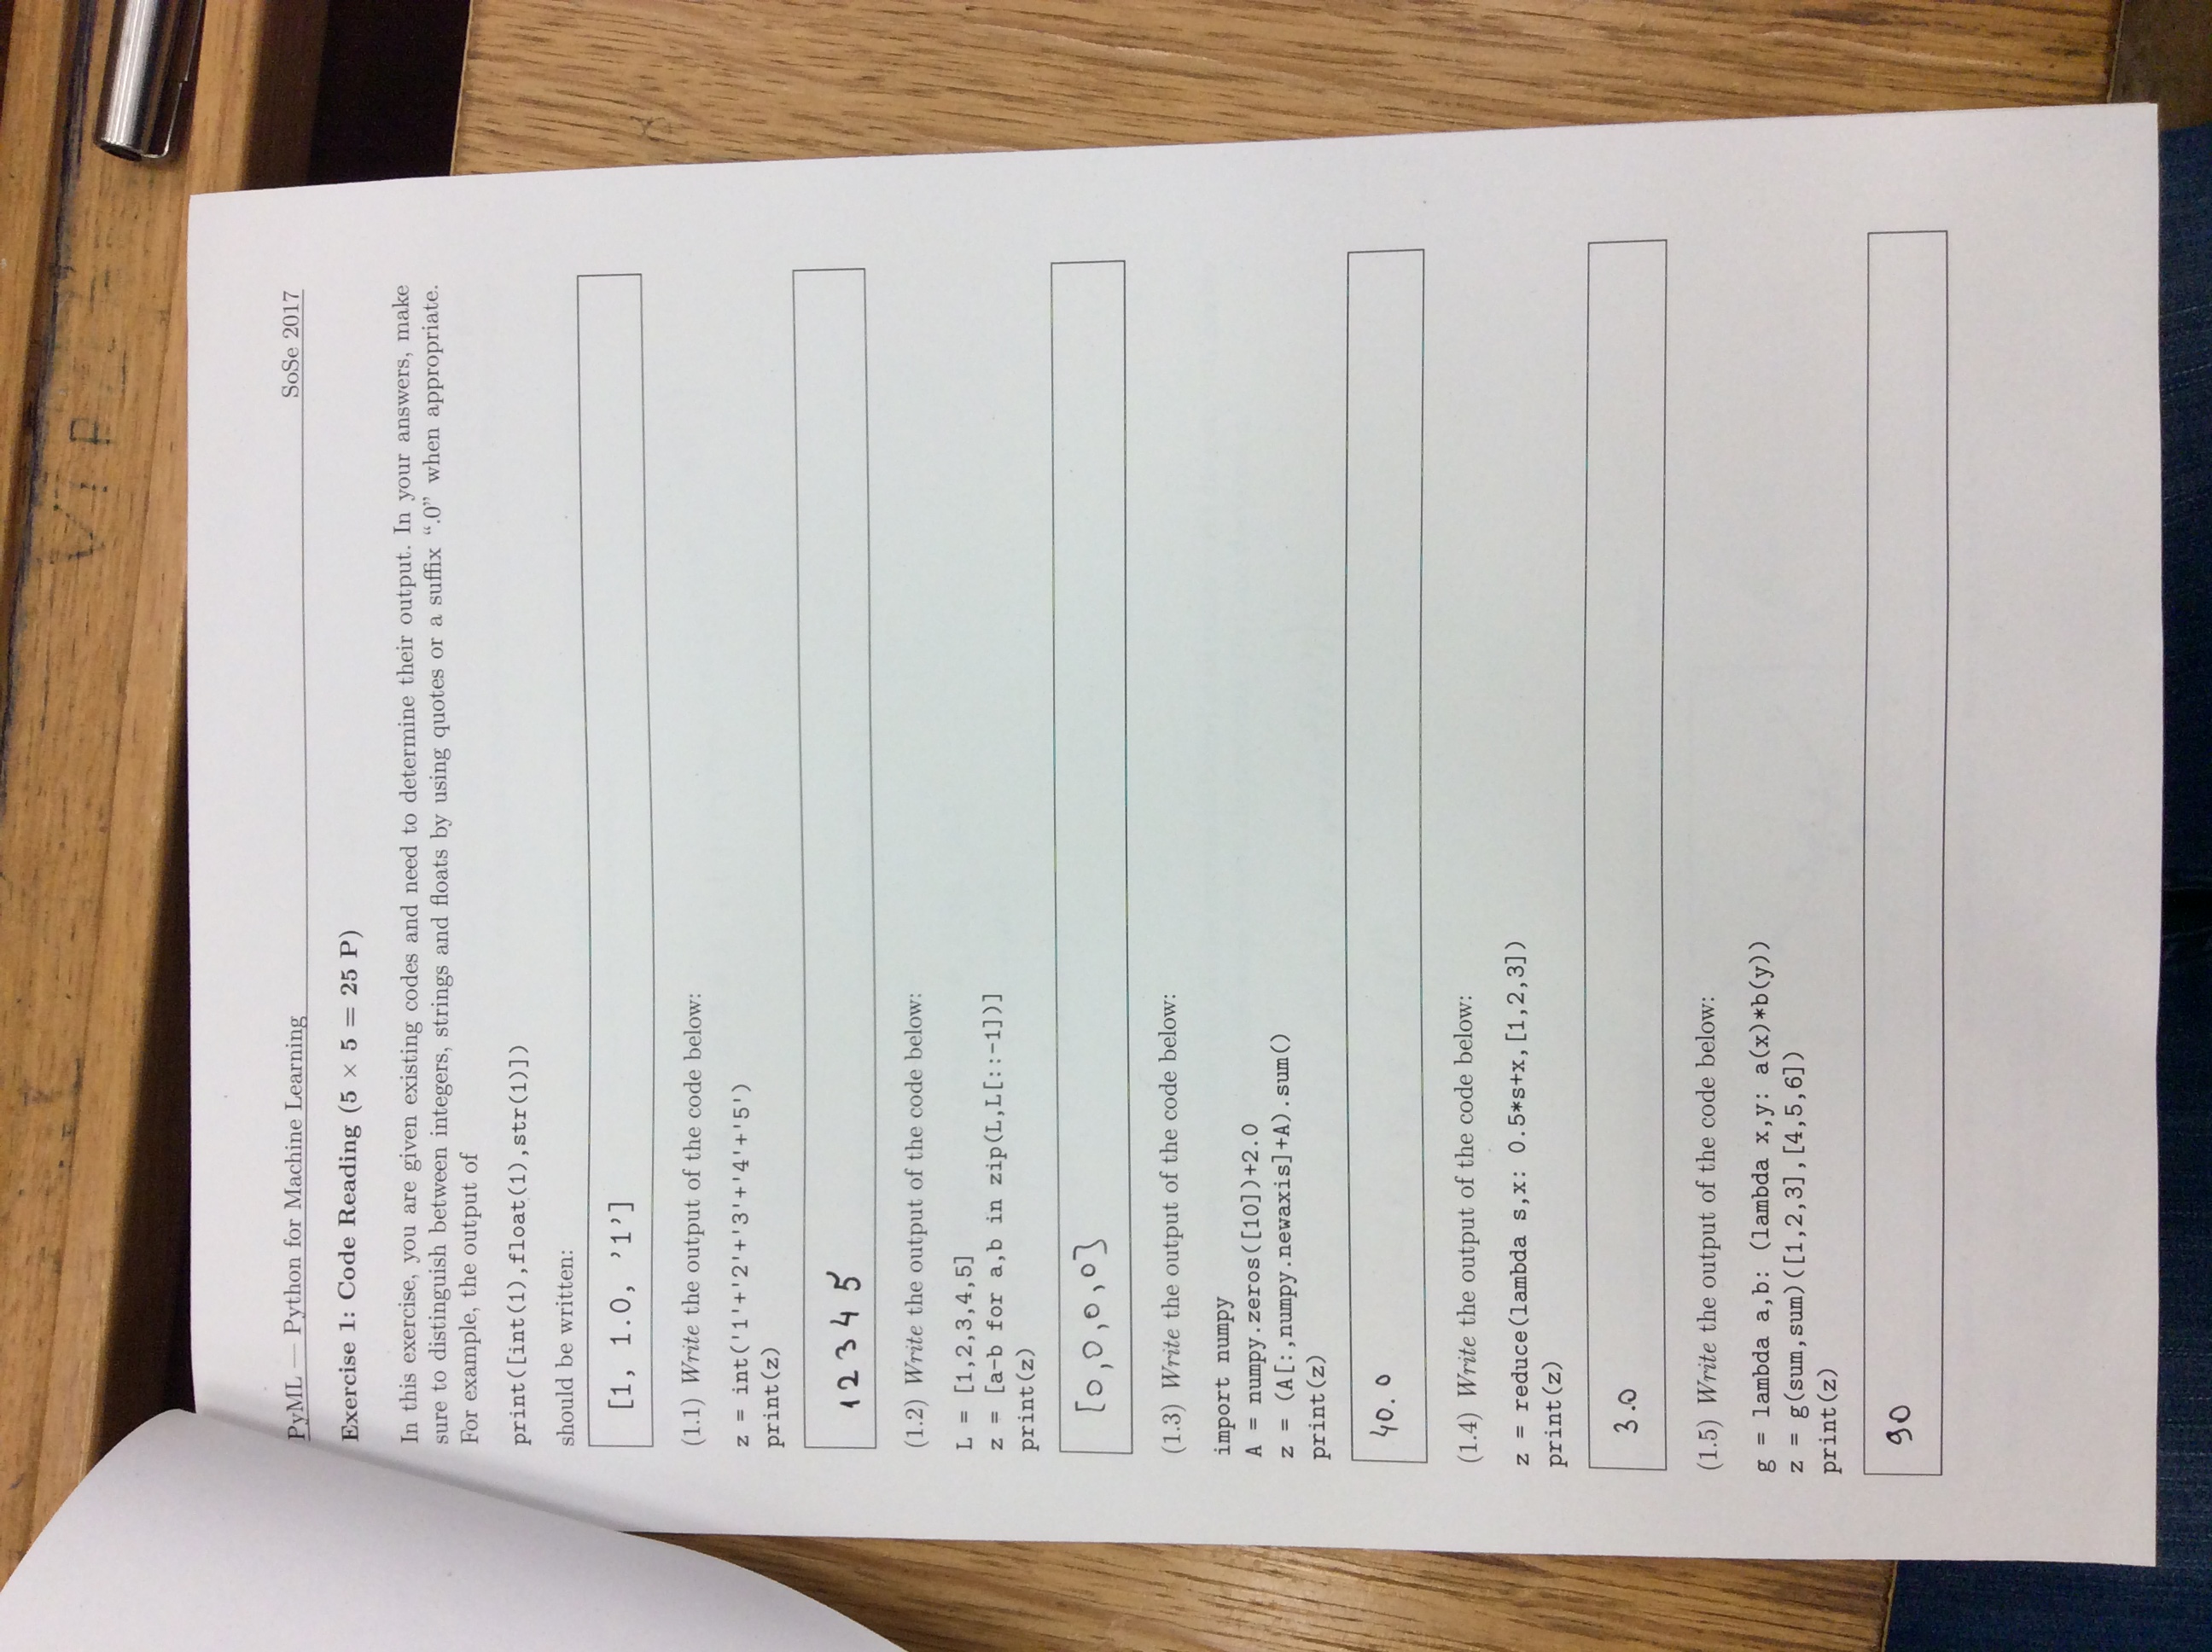 VIP
PyML — Python for Machine Learning SoSe 2017
Exercise 1: Code Reading (5 × 5 = 25 P)
In this exercise, you are given existing codes and need to determine their output. In your answers, make
sure to distinguish between integers, strings and floats by using quotes or a suffix “.0” when appropriate.
For example, the output of
print([int(1),float(1),str(1)])
should be written:
[1, 1.0, ’1’]
(1.1) Write the output of the code below:
z = int('1'+'2'+'3'+'4'+'5')
print(z)
12345
(1.2) Write the output of the code below:
L = [1,2,3,4,5]
z = [a-b for a,b in zip(L,L[::-1])]
print(z)
[0,0,0,0]
(1.3) Write the output of the code below:
import numpy
A = numpy.zeros([10])+2.0
z = (A[:,numpy.newaxis]+A).sum()
print(z)
40.0
(1.4) Write the output of the code below:
z = reduce(lambda s,x: 0.5*s+x,[1,2,3])
print(z)
3.0
(1.5) Write the output of the code below:
g = lambda a,b: (lambda x,y: a(x)*b(y))
z = g(sum,sum)([1,2,3],[4,5,6])
print(z)
90